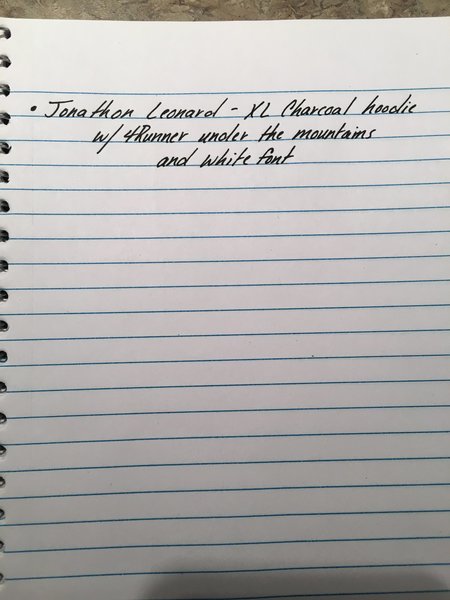 • Jonathon Leonard - XL Charcoal hoodie
w/ 4Runner under the mountains
and white font